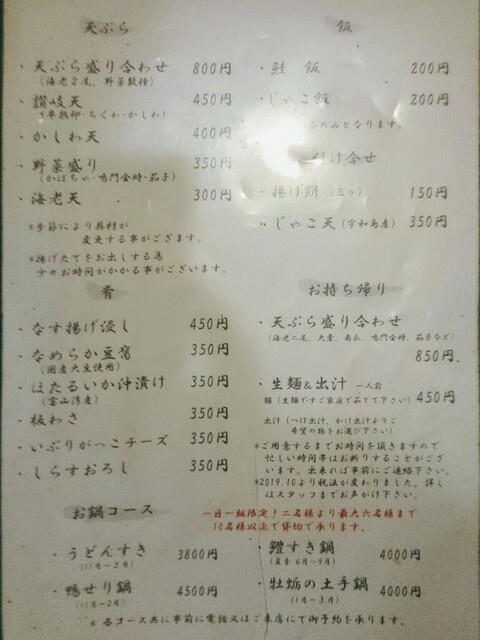 天ぷら
・天ぷら盛り合わせ 800円
(海老2尾、野菜数種)
・讃岐天 450円
(半熟卵・ちくわ・かしわ)
・かしわ天 400円
・野菜盛り 350円
(かぼちゃ・鳴門金時・茄子)
・海老天 300円
※季節により具材が
変更する事がございます。
※揚げたてをお出しする為
少々お時間がかかる事がございます。
肴
・なす揚げ浸し 450円
・なめらか豆腐 350円
(国産大豆使用)
・ほたるいか沖漬け 350円
(富山湾産)
・板わさ 350円
・いぶりがっこチーズ 350円
・しらすおろし 350円
飯
・鮭 飯 200円
・じゃこ飯 200円
のみとなります。
付け合せ
・揚げ餅(三ヶ) 150円
・じゃこ天(宇和島産) 350円
お持ち帰り
・天ぷら盛り合わせ
(海老二尾、大葉、南瓜、鳴門金時、茄子など)
850円
・生麺&出汁 一人前 450円
麺(生麺ですご家庭で茹でて下さい)
出汁(つけ出汁、かけ出汁よりご
希望の物をお選び下さい)
*ご用意するまでお時間を頂きますので
忙しい時間帯はお断りすることがござ
います。出来れば事前にご連絡下さい。
*2019.10より税法が変わりました。詳し
はスタッフまでお声がけ下さい。
お鍋コース
一日一組限定!二名様より最大六名様まで
10名様以上で貸切で承ります。
・うどんすき 3800円
(11月~3月)
・鴨せり鍋 4500円
(11月~2月)
・鱧すき鍋 4000円
(夏季 6月~9月)
・牡蛎の土手鍋 4000円
(1月~3月)
* 各コース共に事前に電話又はご来店にて御予約を承ります。